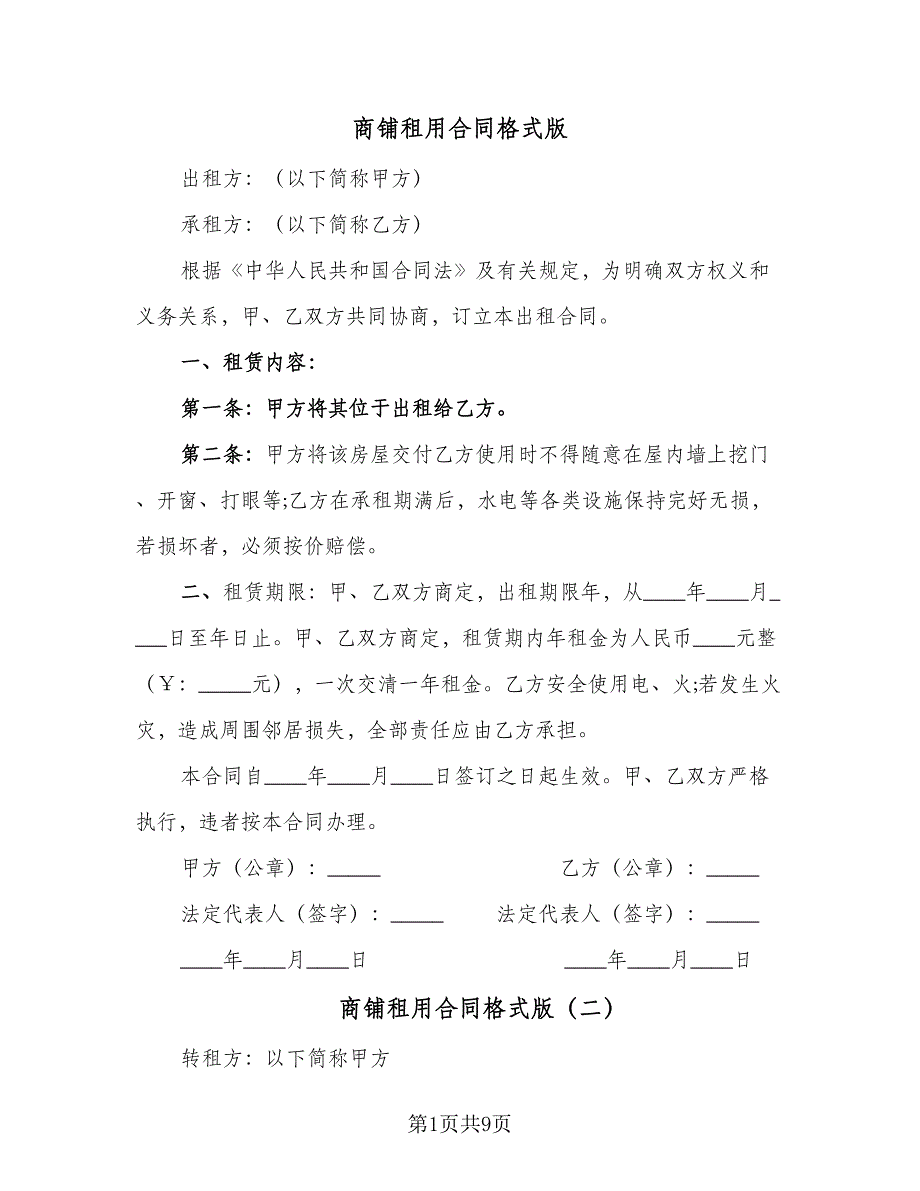 商铺租用合同格式版
出租方：（以下简称甲方）
承租方：（以下简称乙方）
根据《中华人民共和国合同法》及有关规定，为明确双方权义和
义务关系，甲、乙双方共同协商，订立本出租合同。
一、租赁内容：
第一条：甲方将其位于出租给乙方。
第二条：甲方将该房屋交付乙方使用时不得随意在屋内墙上挖门
、开窗、打眼等;乙方在承租期满后，水电等各类设施保持完好无损，
若损坏者，必须按价赔偿。
二、租赁期限：甲、乙双方商定，出租期限年，从____年____月_
___日至年日止。甲、乙双方商定，租赁期内年租金为人民币____元整
（￥：_____元），一次交清一年租金。乙方安全使用电、火;若发生火
灾，造成周围邻居损失，全部责任应由乙方承担。
本合同自____年____月____日签订之日起生效。甲、乙双方严格
执行，违者按本合同办理。
甲方（公章）：_____ 乙方（公章）：_____
法定代表人（签字）：_____ 法定代表人（签字）：_____
____年____月____日 ____年____月____日
商铺租用合同格式版（二）
转租方：以下简称甲方
第1页共9页